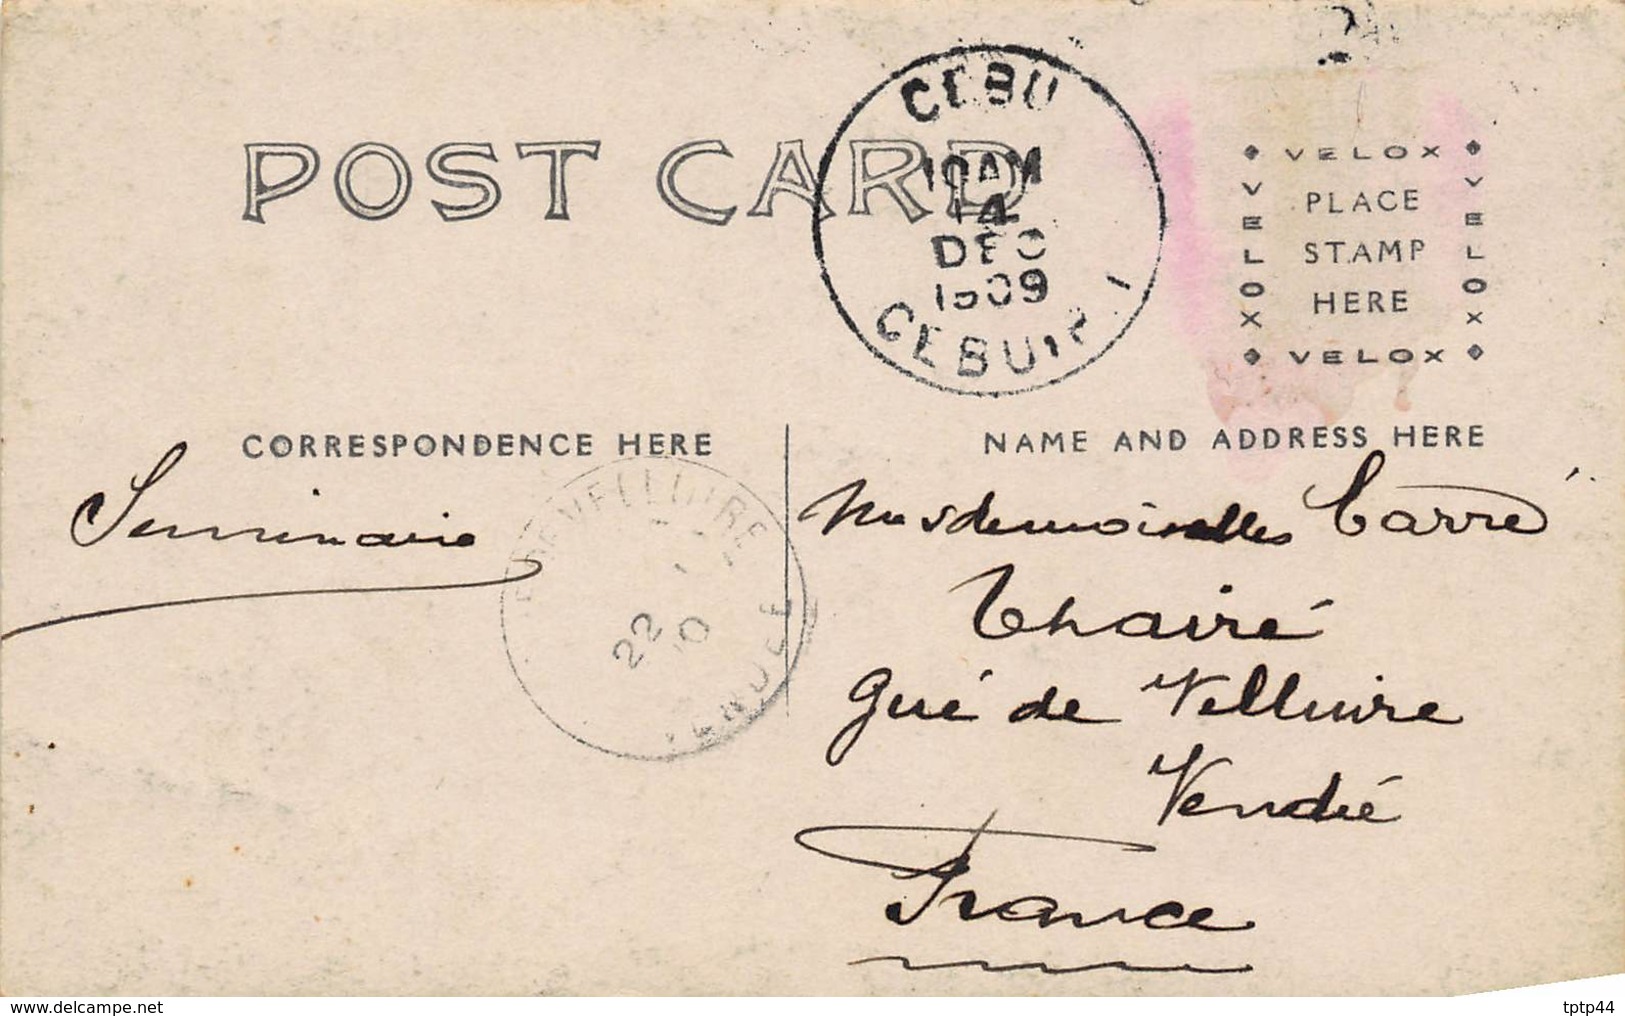 POST CARD
CEBU
10AM
14
DEC
1909
CEBU, P. I.
VELOX
VELOX
PLACE
STAMP
HERE
VELOX
VELOX
CORRESPONDENCE HERE
NAME AND ADDRESS HERE
Seminaire
VELLUIRE
22
10
VENDÉE
Mesdemoiselles Carré
Thairé
Gué de Velluire
Vendée
France
www.delcampe.net
tptp44